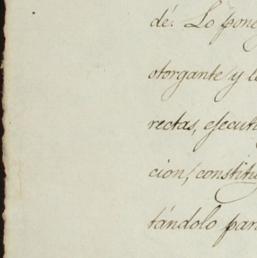 dé. Lo pone
otorgante y l
rectas, efecut
cion, constitu
tándolo par